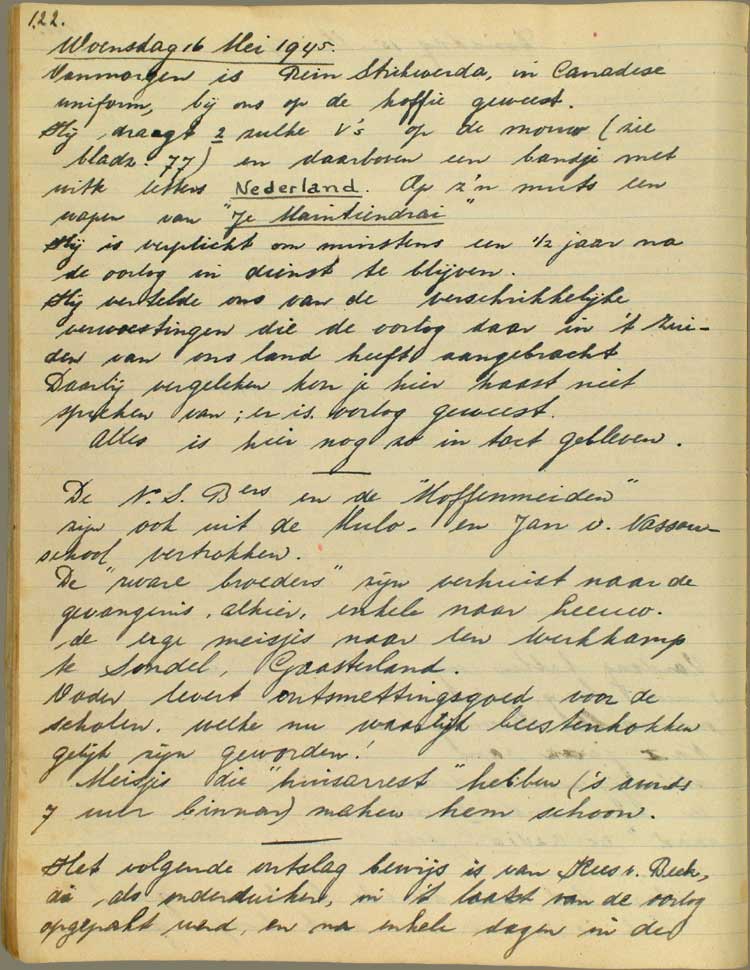 122.
Woensdag 16 Mei 1945.
Vanmorgen is Rein Strikwerda, in Canadese
uniform, bij ons op de koffie geweest.
Hij draagt 2 zulke V's op de mouw (zie
bladz. 77) en daarboven een bandje met
witte letters Nederland. Op z'n muts een
wapen van "Je Maintiendrai"
Hij is verplicht om minstens een 1/2 jaar na
de oorlog in dienst te blijven.
Hij vertelde ons van de verschrikkelijke
verwoestingen die de oorlog daar in 't Zui-
den van ons land heeft aangebracht
Daarbij vergeleken kon je hier haast niet
spreken van; er is oorlog geweest.
Alles is hier nog zo in tact gebleven.
De N.S.Bers en de "Moffenmeiden"
zijn ook uit de Mulo- en Jan v. Nassau-
school vertrokken.
De "zware broeders" zijn verhuist naar de
gevangenis, alhier, enkele naar Leeuw.
de erge meisjes naar een werkkamp
te Sondel, Gaasterland.
Vader levert ontsmettingsgoed voor de
scholen. welke nu waarlijk beestenhokken
gelijk zijn geworden!
Meisjes die "huisarrest" hebben ('s avonds
7 uur binnen) maken hem schoon.
Het volgende ontslag bewijs is van Kees v. Beek,
die als onderduiker, in 't laatst van de oorlog
opgepakt werd, en na enkele dagen in de